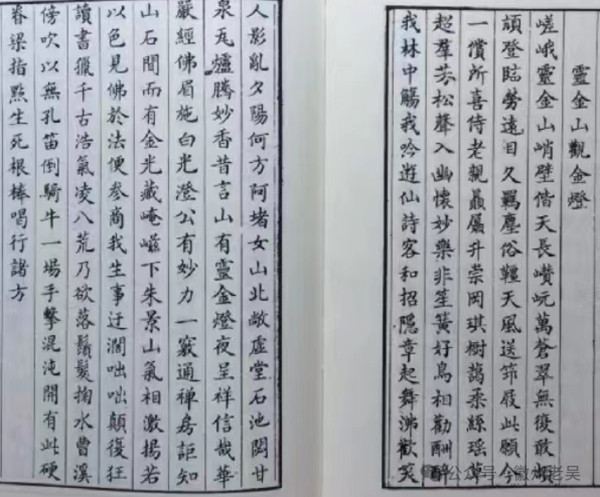 靈金山觀金燈
嵯峨靈金山峭壁偕天長巑岏萬蒼翠無復敢頡
頏登臨勞遠目久羈塵俗韁天風送筇屐此願今
一償所喜侍老親贔屭升崇岡琪樹藹柔絲瑤草
超羣芳松聲入幽懷妙樂非笙簧好鳥相勸酬醉
我林中觴我吟遊仙詩客和招隱章起舞沸歡笑
人影亂夕陽何方阿堵女山北敞虛堂石池閟甘
泉瓦爐騰妙香昔言山有靈金燈夜呈祥信哉華
嚴經佛眉施白光澄公有妙力一竅通禪房詎知
山石間而有金光藏崦嵫下朱景山氣相激揚若
以色見佛於法便參商我生事迂濶咄咄顛復狂
讀書獵千古浩氣凌八荒乃欲落鬚髮掬水曹溪
傍吹以無孔笛倒騎牛一場手擘混沌開有此硬
脊梁指點生死根棒唱行諸方
公众号 徽州老吴